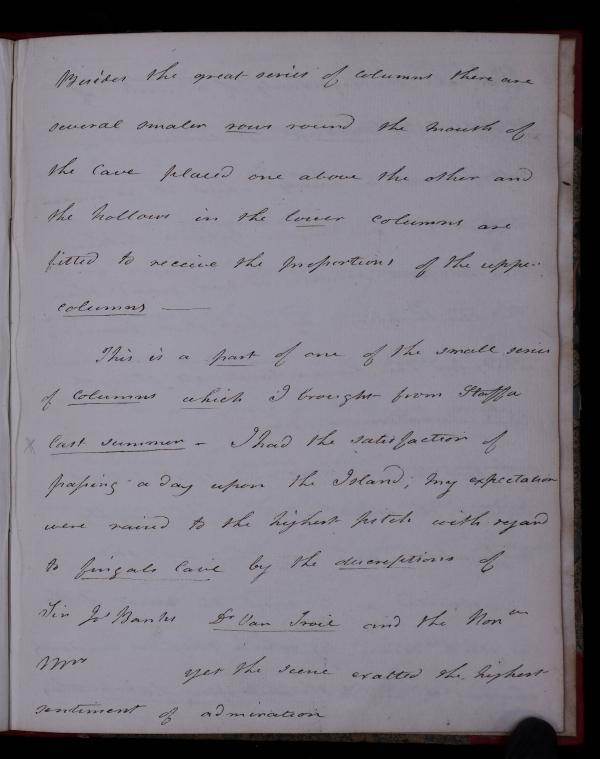 Besides the great series of columns there are
several smaler rows round the mouth of
the Cave placed one above the other and
the hollows in the lower columns are
fitted to receive the proportions of the upper
columns —
This is a part of one of the small series
of Columns which I brought from Staffa
x last summer – I had the satisfaction of
passing a day upon the Island; my expectation
were raised to the highest pitch with regard
to fingals Cave by the discreptions of
Sir Js Banks Dr Van Troil and the Honble
Mrs yet the scene exalted the highest
sentiment of admiration